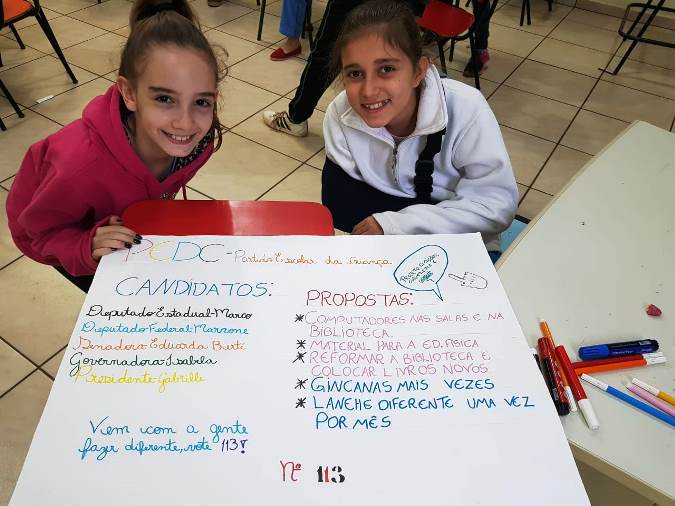 PEDC - Partido Escolar da Criança
CANDIDATOS:
Deputado Estadual-Marco
Deputado-Federal-Morzone
Senadora-Eduarda
Governadora-Isabela
Presidente-Gabrielli
Vem com a gente
fazer diferente, vote 113!
PROPOSTAS:
* COMPUTADORES NAS SALAS E NA
BIBLIOTECA.
* MATERIAL PARA A ED.FÍSICA
* REFORMAR A BIBLIOTECA E
COLOCAR LIVROS NOVOS
* GINCANAS MAIS VEZES
* LANCHE DIFERENTE UMA VEZ
POR MÊS
Nº 113